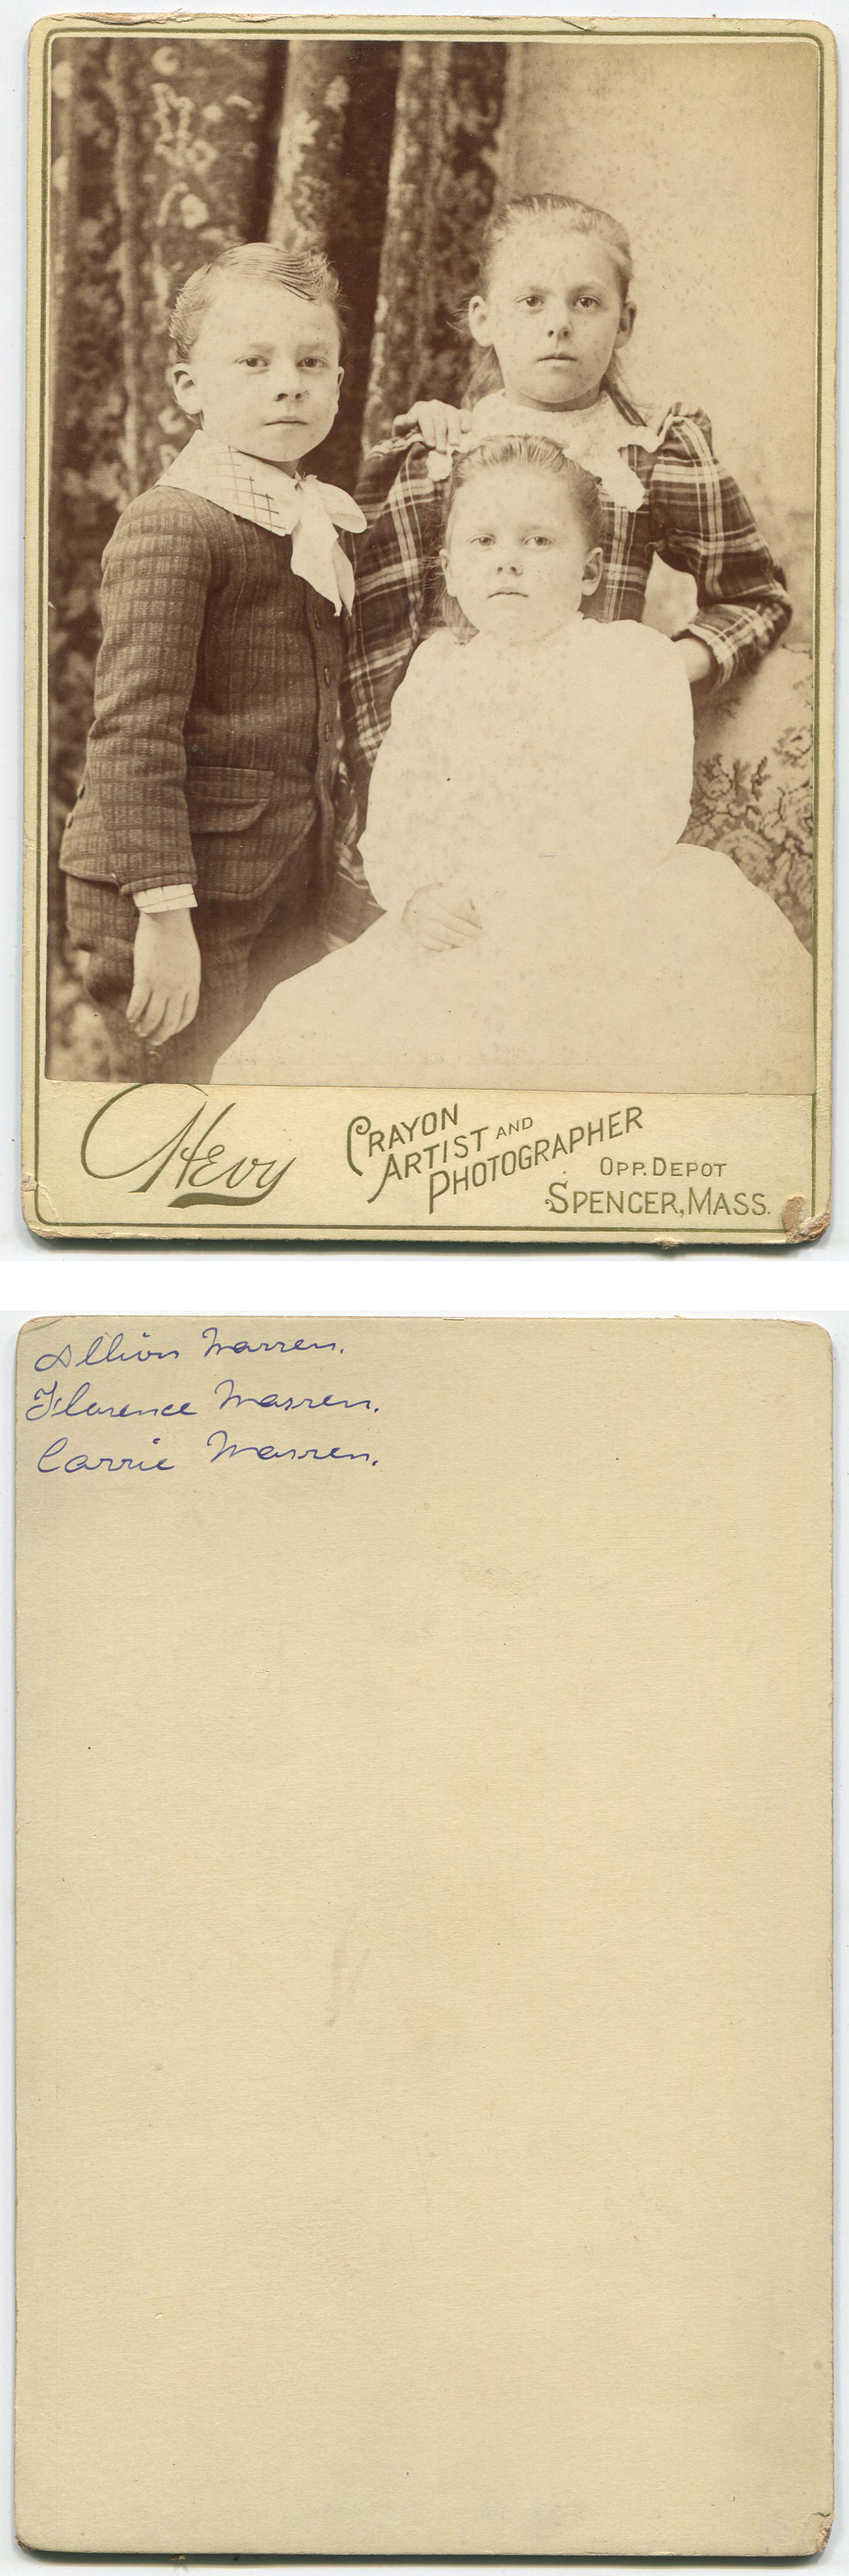 CHevy
CRAYON
ARTIST AND
PHOTOGRAPHER
OPP. DEPOT
SPENCER, MASS.
Warren.
Florence Warren.
Carrie Warren.